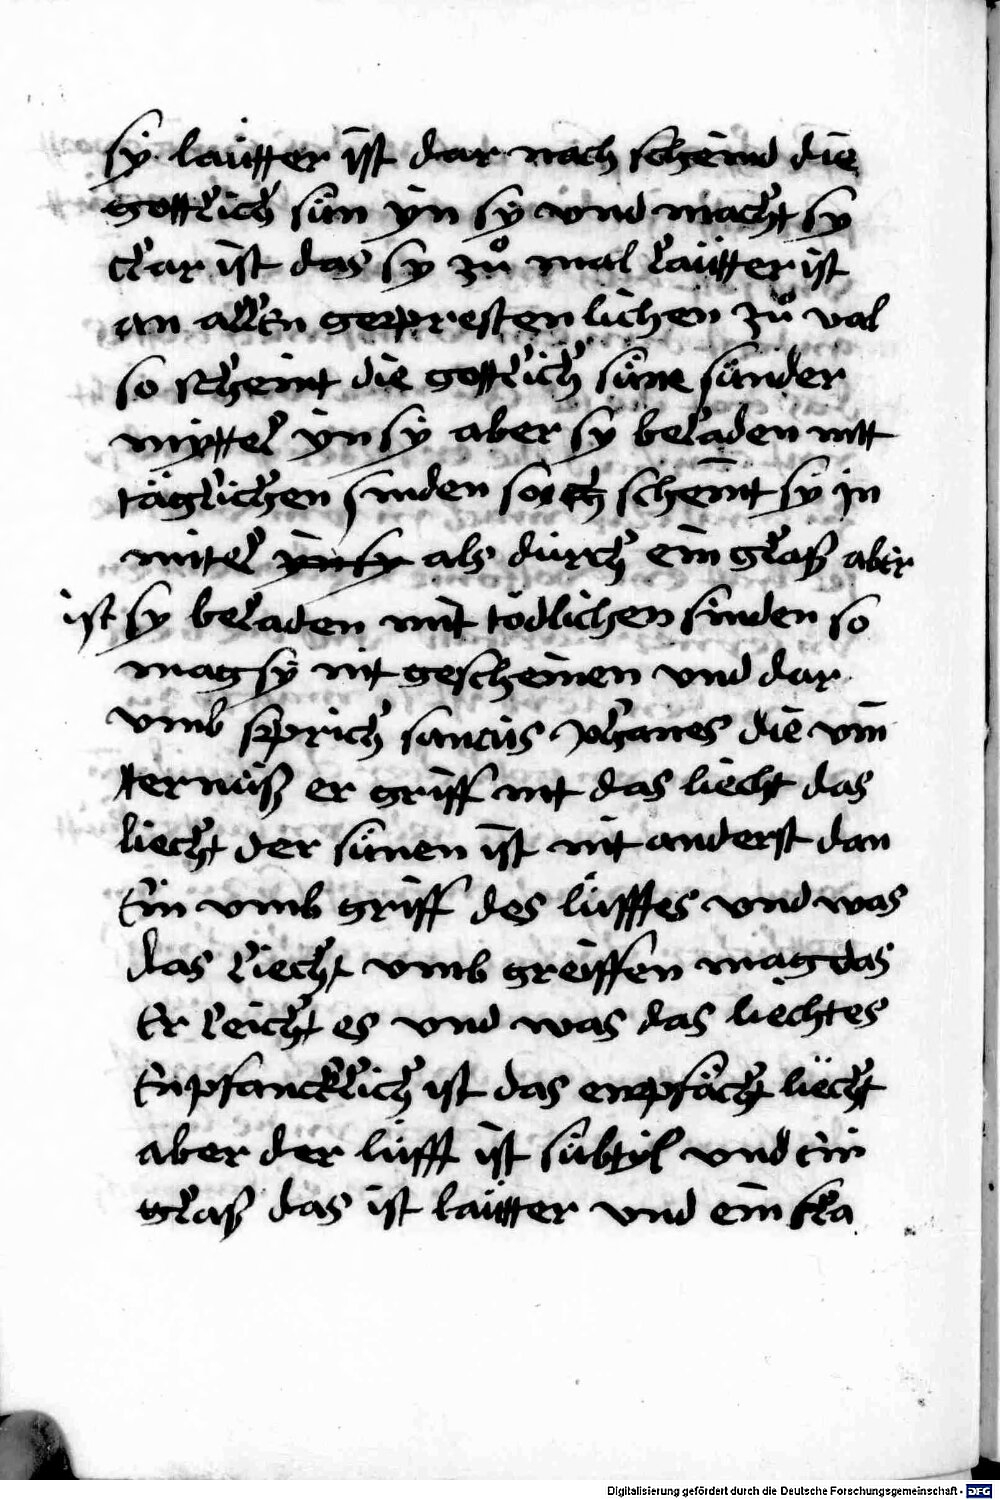 sy laütter ist dar nach scheind die
gottlich sün yn sy vnd macht sy
clar ist das sy zů mal laütter ist
an allen geprestenlichen zů val
so scheint die gottlich süne sünder
myttel yn sy aber sy beladen mit
täglichen sunden so scheint sy in
mitel yn sy als durch ein glaß aber
ist sy beladen mit tödlichen sunden so
mag sy nit gescheinen vnd dar
vmb sprich sanctus Johanes die vin
ternüß er griff nit das liecht das
liecht der sünen ist nit anderst dan
Ein vmb griff des lüfftes vnd was
das liecht vmb greiffen mag das
Er leicht es vnd was das liechtes
Enpfancklich ist das enpfächt liecht
aber der lüfft ist subtyl vnd ein
glaß das ist laütter vnd ein kla
Digitalisierung gefördert durch die Deutsche Forschungsgemeinschaft - DFG